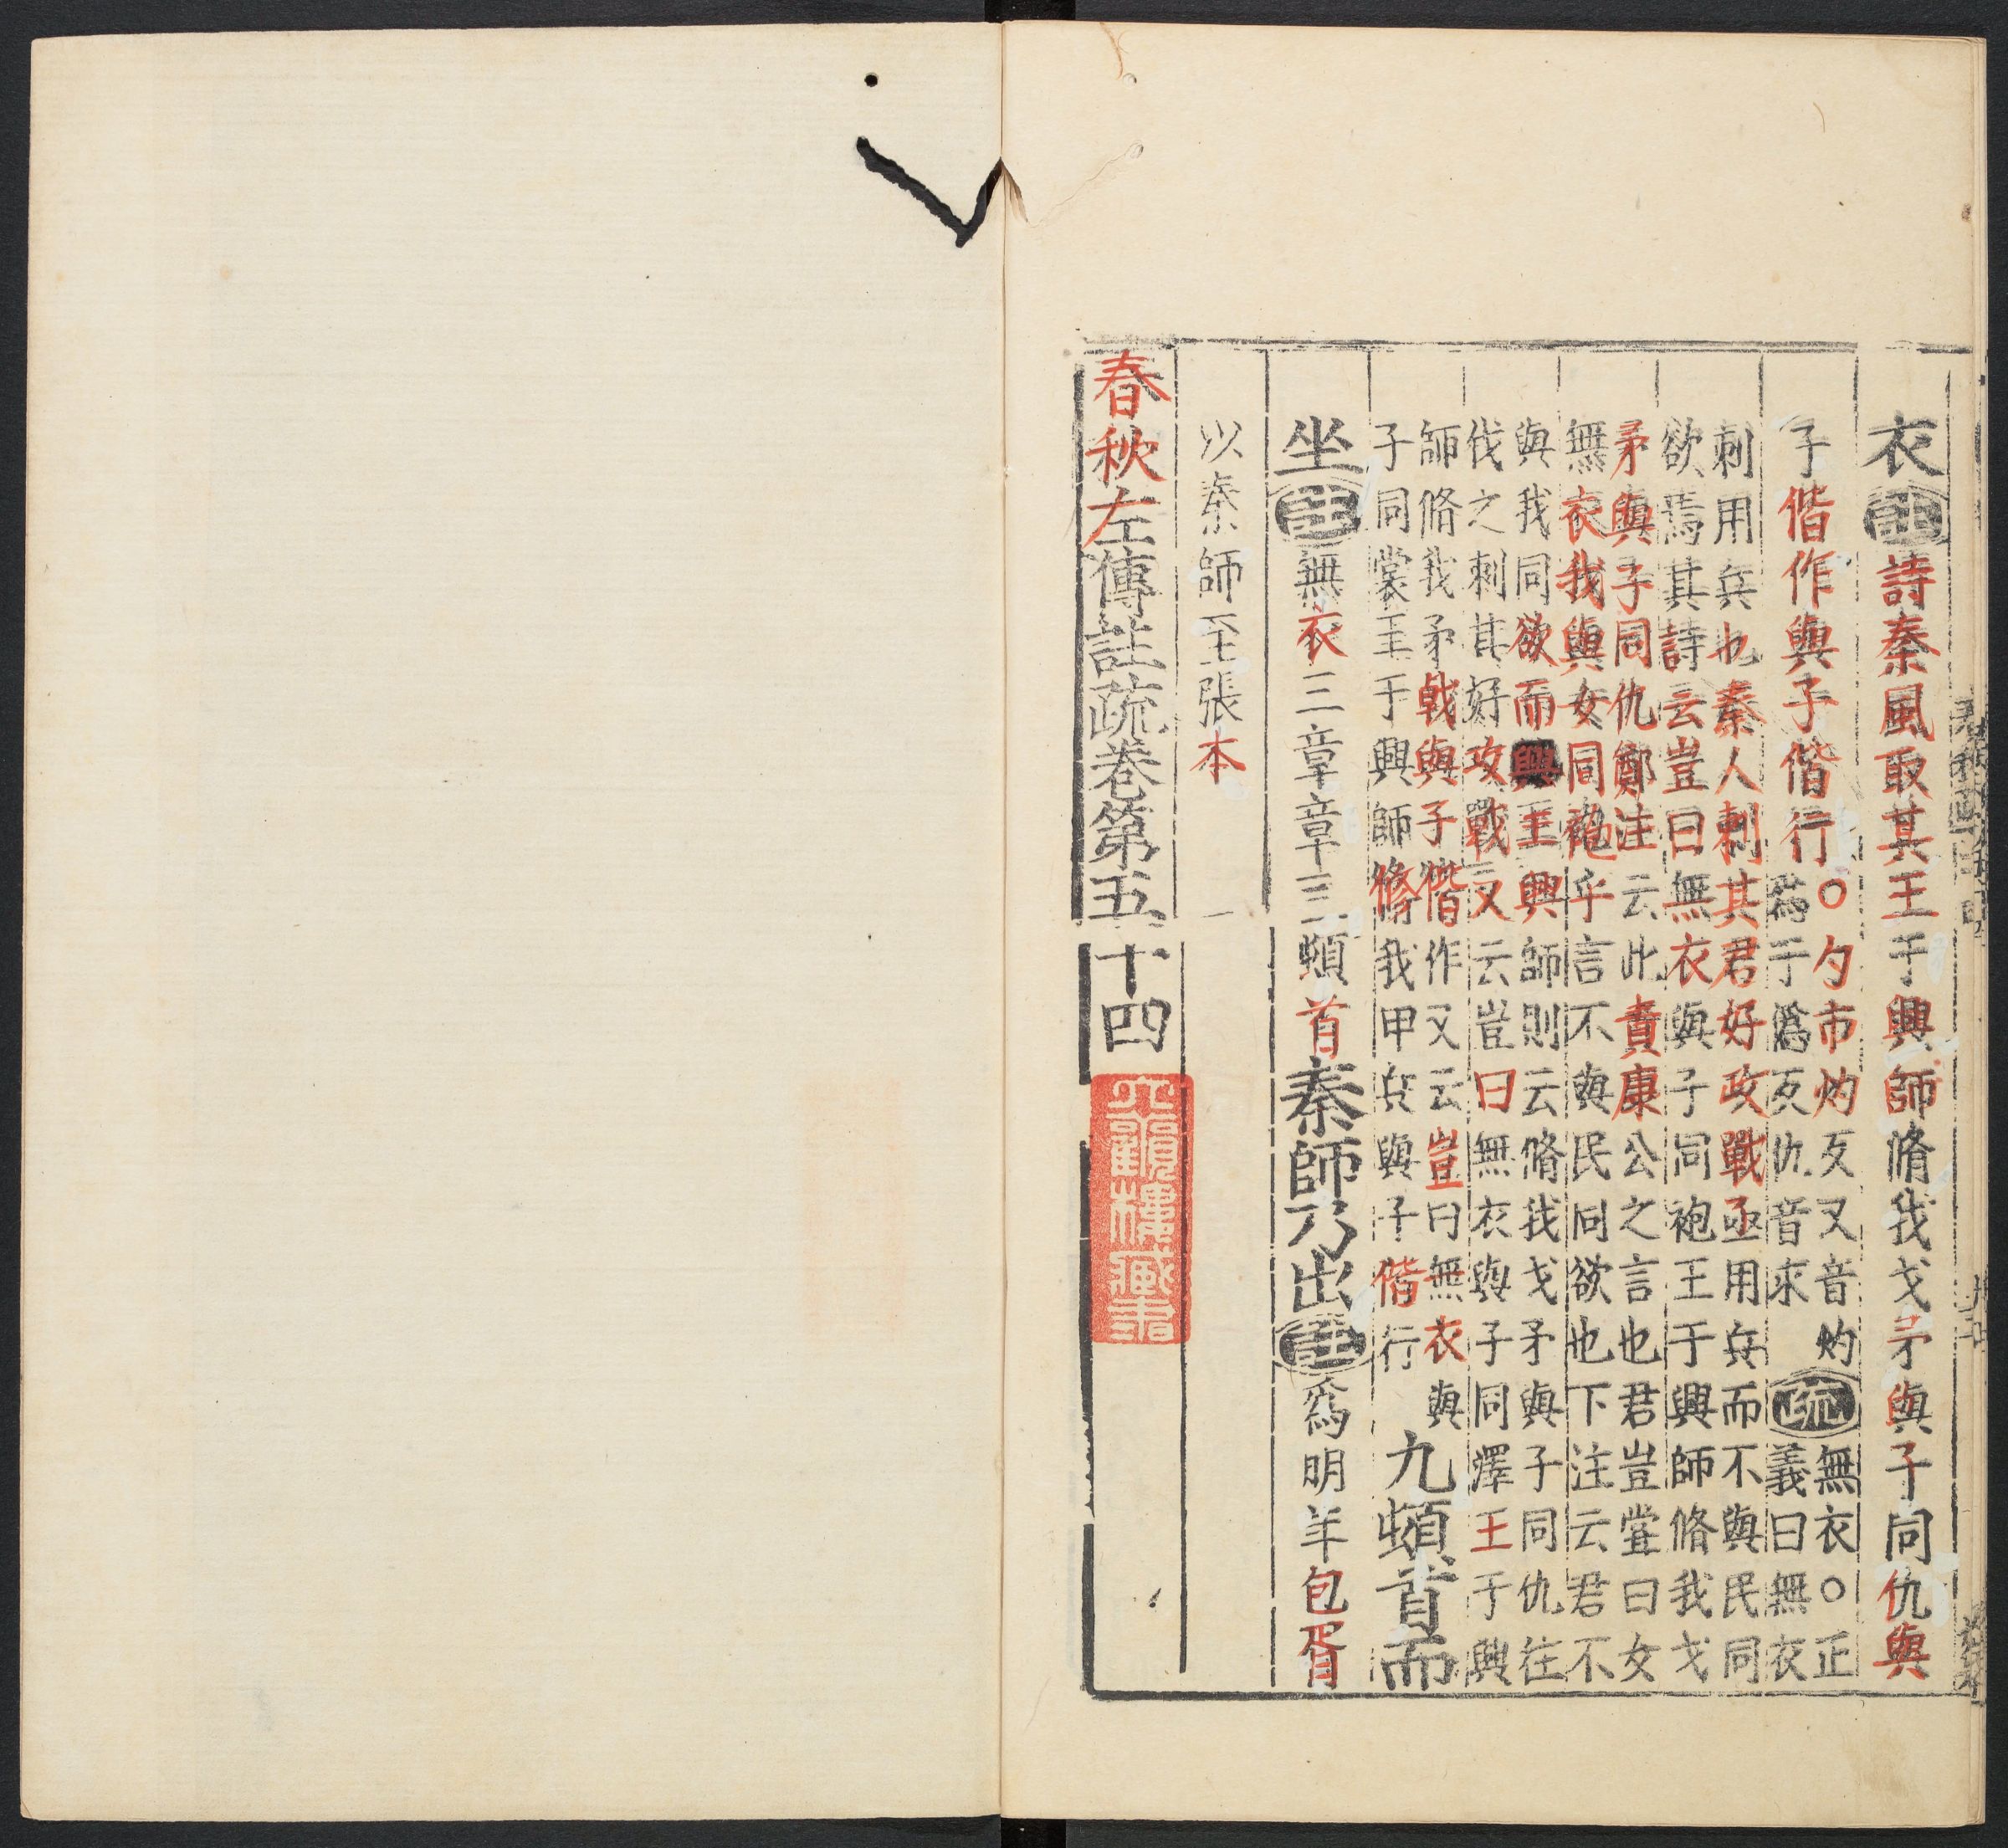 衣註詩秦風取其王于興師脩我戈矛與子同仇與
子偕作與子偕行○勺市灼反又音灼疏無衣○正
爲于僞反仇音求義曰無衣
刺用兵也秦人刺其君好攻戰亟用兵而不與民同
欲焉其詩云豈曰無衣與子同袍王于興師脩我戈
矛與子同仇鄭注云此責康公之言也君豈嘗曰女
無衣我與女同袍乎言不與民同欲也下注云君不
與我同欲而興王興師則云脩我戈矛與子同仇往
伐之刺其好攻戰又云豈曰無衣與子同澤王于興
師脩我矛戟與子偕作又云豈曰無衣與
子同裳王于興師修我甲兵與子偕行
九頓首而
坐註無衣三章章三頓首秦師乃出註爲明年包胥
以秦師至張本
春秋左傳註疏卷第五十四